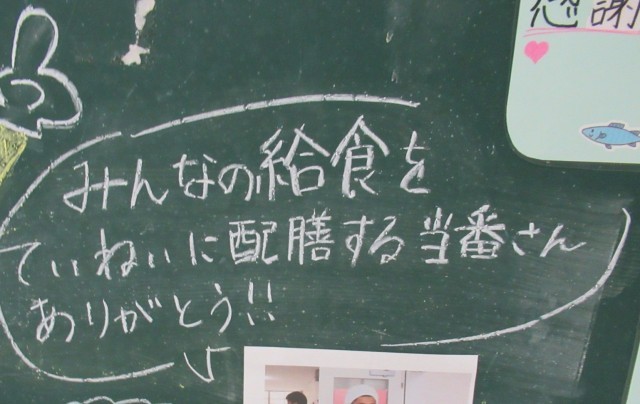 感謝
みんなの給食を
ていねいに配膳する当番さん
ありがとう!!